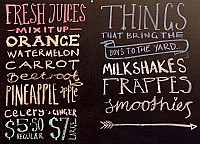 FRESH JUICES
MIX IT UP
ORANGE
WATERMELON
CARROT
Beetroot
PINEAPPLE apple
Celery + GINGER
$5.50 $7
REGULAR LARGE
THINGS
THAT BRING THE
BOYS TO THE YARD
MILKSHAKES
FRAPPES
smoothies